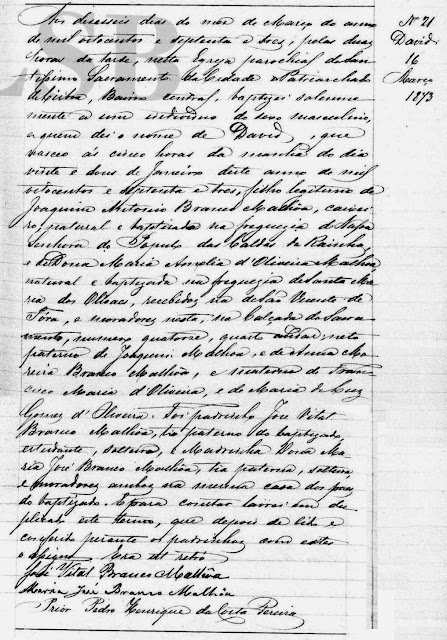 Nº 21
David
16
Março
1873
Aos dezesseis dias do mez de Março do anno
de mil oitocentos e septenta e tres, pelas duas
horas da tarde, nesta Egreja parochial do San-
tissimo Sacramento da Cidade e Patriarchado
de Lisboa, Bairro central, baptizei solemne-
mente a um individuo do sexo masculino,
a quem dei o nome de David, que
nasceu ás cinco horas da manhã do dia
vinte e dous de Janeiro deste anno de mil
oitocentos e septenta e tres, filho legitimo de
Joaquim Antonio Branco Malhôa, caixei-
ro, natural e baptizado na freguezia de Nossa
Senhora do Populo das Caldas da Rainha,
e de Dona Maria Amelia d'Oliveira Malhôa
natural e baptizada na freguezia de Santa Ma-
ria dos Olivaes, recebidos na de São Vicente de
Fóra, e moradores nesta, na Calçada do Sacra-
mento, numero quatorze, quarto andar; neto
paterno de Joaquim Malhôa, e de Anna Ma-
ria Branco Malhôa, e materno de Fran-
cisco Maria d'Oliveira, e de Maria da Luz
Gomez d'Oliveira. Foi padrinho José Vital
Branco Malhôa, tio paterno do baptizado,
estudante, solteiro, e Madrinha Dona Ma-
ria José Branco Malhôa, tia paterna, solteira
e moradores ambos na mesma casa dos paes
do baptizado. E para constar lavrei em du-
plicado este termo, que depois de lido e
conferido perante os padrinhos com estes
o assigno. Era ut retro
José Vital Branco Malhôa
Maria José Branco Malhôa
Prior Pedro Henrique da Costa Pereira